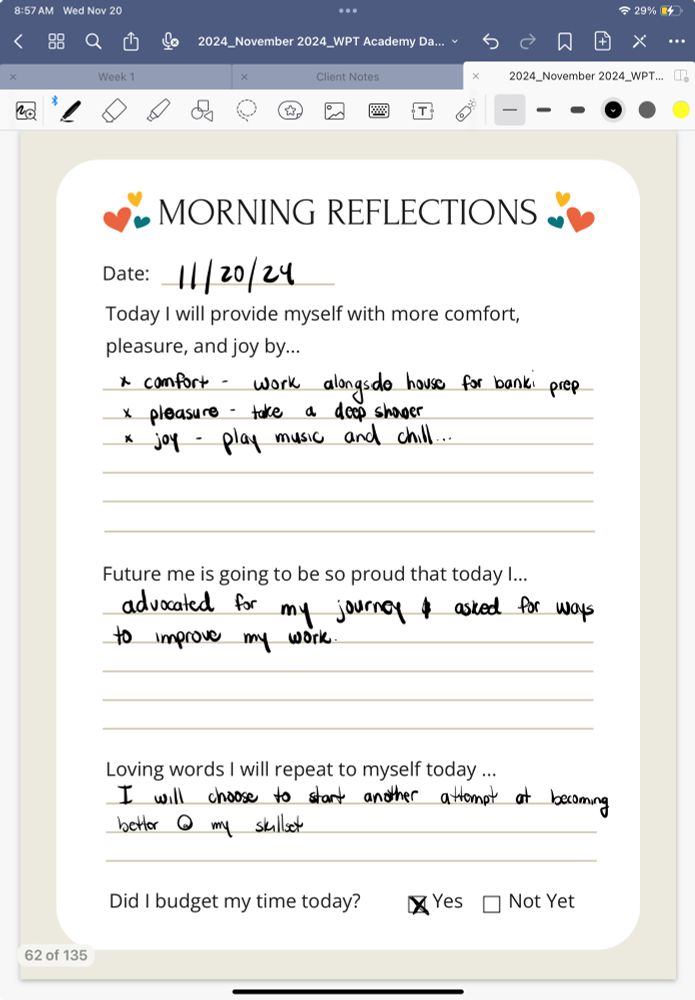 8:57 AM Wed Nov 20
29%
2024_November 2024_WPT Academy Da...
Week 1
Client Notes
2024_November 2024_WPT...
T
MORNING REFLECTIONS
Date: 11/20/24
Today I will provide myself with more comfort,
pleasure, and joy by...
x comfort - work alongsdo house for banki prep
x pleasure - take a deep shower
x joy - play music and chill...
Future me is going to be so proud that today I...
advocated for my journey & asked for ways
to improve my work.
Loving words I will repeat to myself today ...
I will choose to start another attempt at becoming
better @ my skillset
Did I budget my time today? X Yes Not Yet
62 of 135